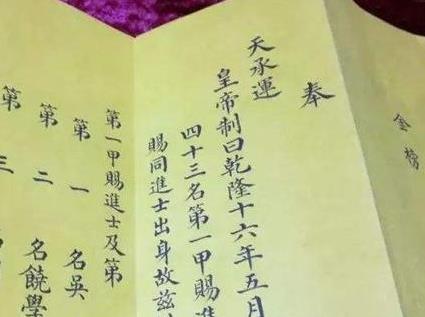 金榜
奉
天承運
皇帝制曰乾隆十六年五月
四十三名第一甲賜進
賜同進士出身故茲
第一甲賜進士及第
第一名吳
第二名饒學
第三